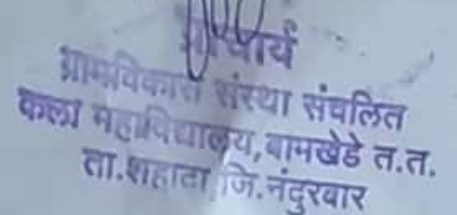 प्राचार्य
ग्रामविकास संस्था संचलित
कला महाविद्यालय, बामखेडे त.त.
ता.शहादा जि.नंदुरबार